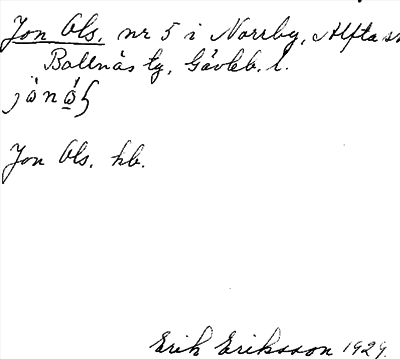 Jon Ols. nr 5 i Norrby, Alfta sn
Bollnäs tg, Gävleb. l.
Jon Ols. hb.
Erik Eriksson 1929.